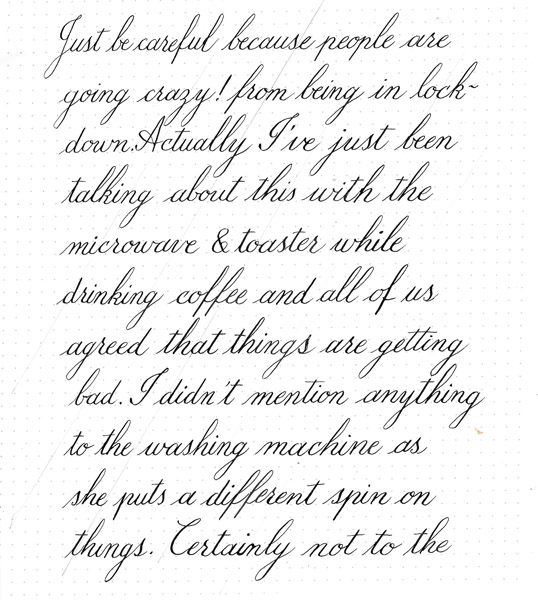 Just be careful because people are
going crazy! from being in lock-
down. Actually I've just been
talking about this with the
microwave & toaster while
drinking coffee and all of us
agreed that things are getting
bad. I didn't mention anything
to the washing machine as
she puts a different spin on
things. Certainly not to the